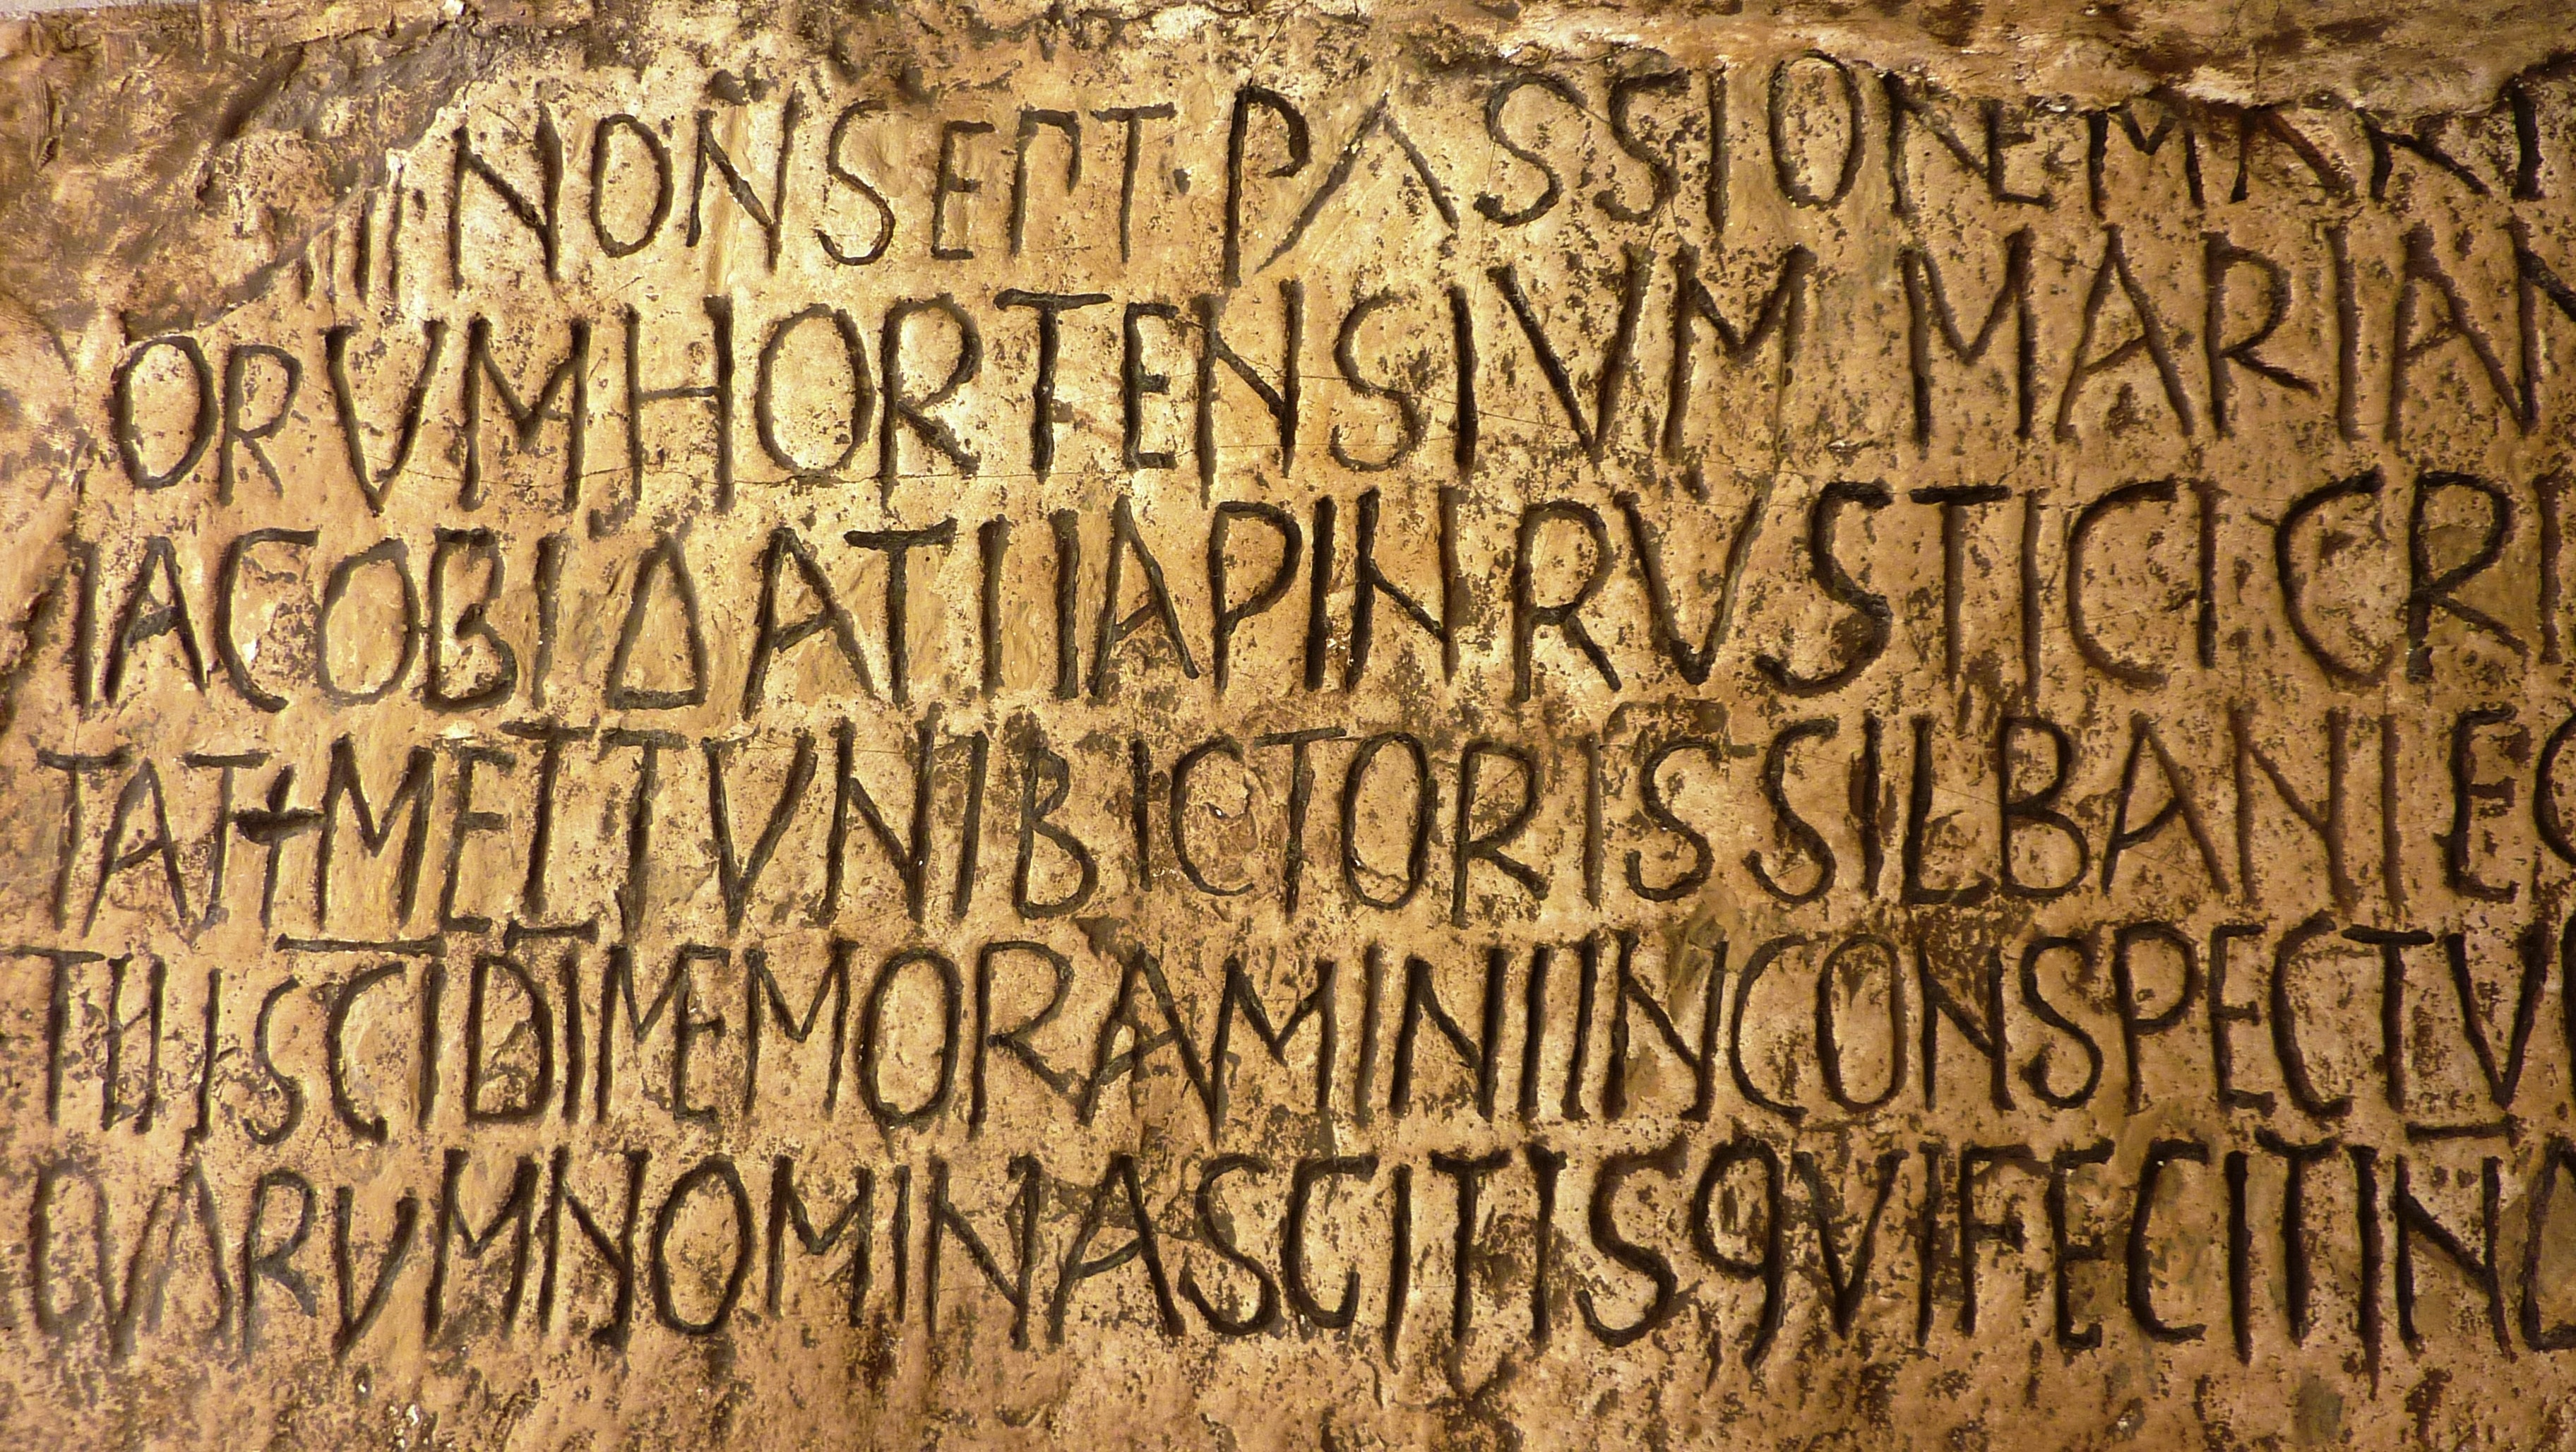 III NOÑ SEPT · PASSIONE MART
ORVM HORTENSIVM MARIAN
IACOBI DATI IAPIN RVSTICI CRI
TAT + METTVNI BICTORIS SILBANI EG
TII SCI DI MEMORAMINI IN CONSPECTV
QVARVM NOMINA SCITIS QVI FECIT IN